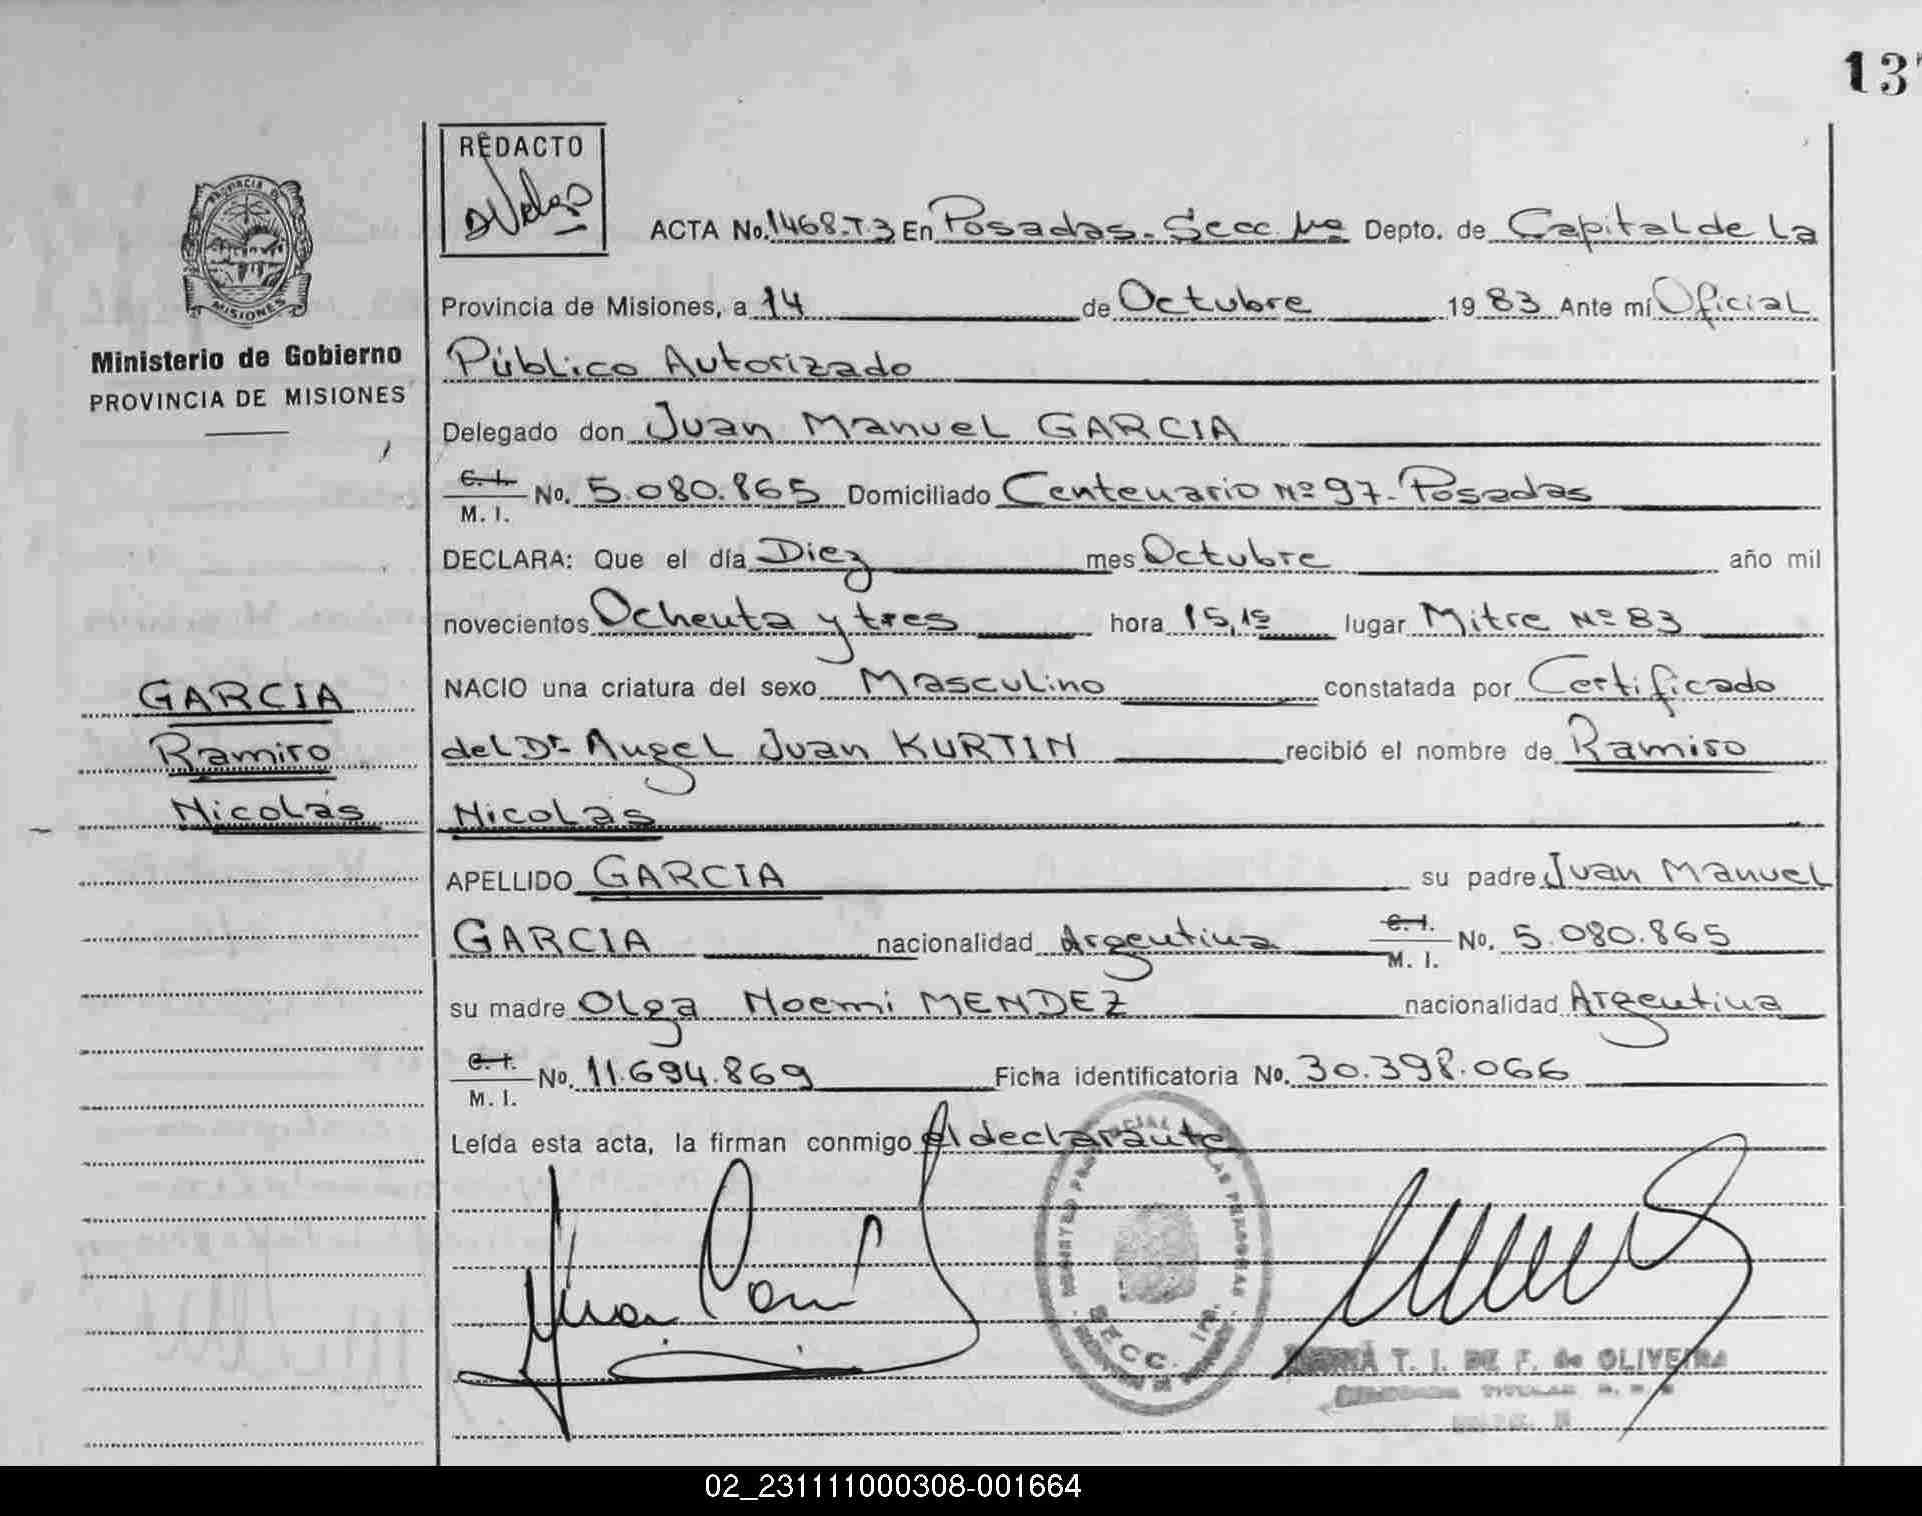 13
REDACTO
ACTA No. 1468-T.3 En Posadas. Secc. 1ra Depto. de Capital de La
PROVINCIA DE
MISIONES
Provincia de Misiones, a 14 de Octubre 1983 Ante mí Oficial
Ministerio de Gobierno
PROVINCIA DE MISIONES
Público Autorizado
Delegado don Juan Manuel GARCIA
C. I.
M. I. No. 5.080.865 Domiciliado Centenario Nº 97 - Posadas
DECLARA: Que el día Diez mes Octubre año mil
novecientos Ochenta y tres hora 15,15 lugar Mitre Nº 83
NACIO una criatura del sexo Masculino constatada por Certificado
GARCIA
Ramiro
Nicolás
del Dr. Angel Juan KURTIN recibió el nombre de Ramiro
Nicolás
APELLIDO GARCIA su padre Juan Manuel
GARCIA nacionalidad Argentina C. I. M. I. No. 5.080.865
su madre Olga Noemi MENDEZ nacionalidad Argentina
C. I.
M. I. No. 11.694.869 Ficha identificatoria No. 30.398.066
Leída esta acta, la firman conmigo el declarante
SECC.
T. I. DE F. de OLIVEIRA
TITULAR
02_231111000308-001664